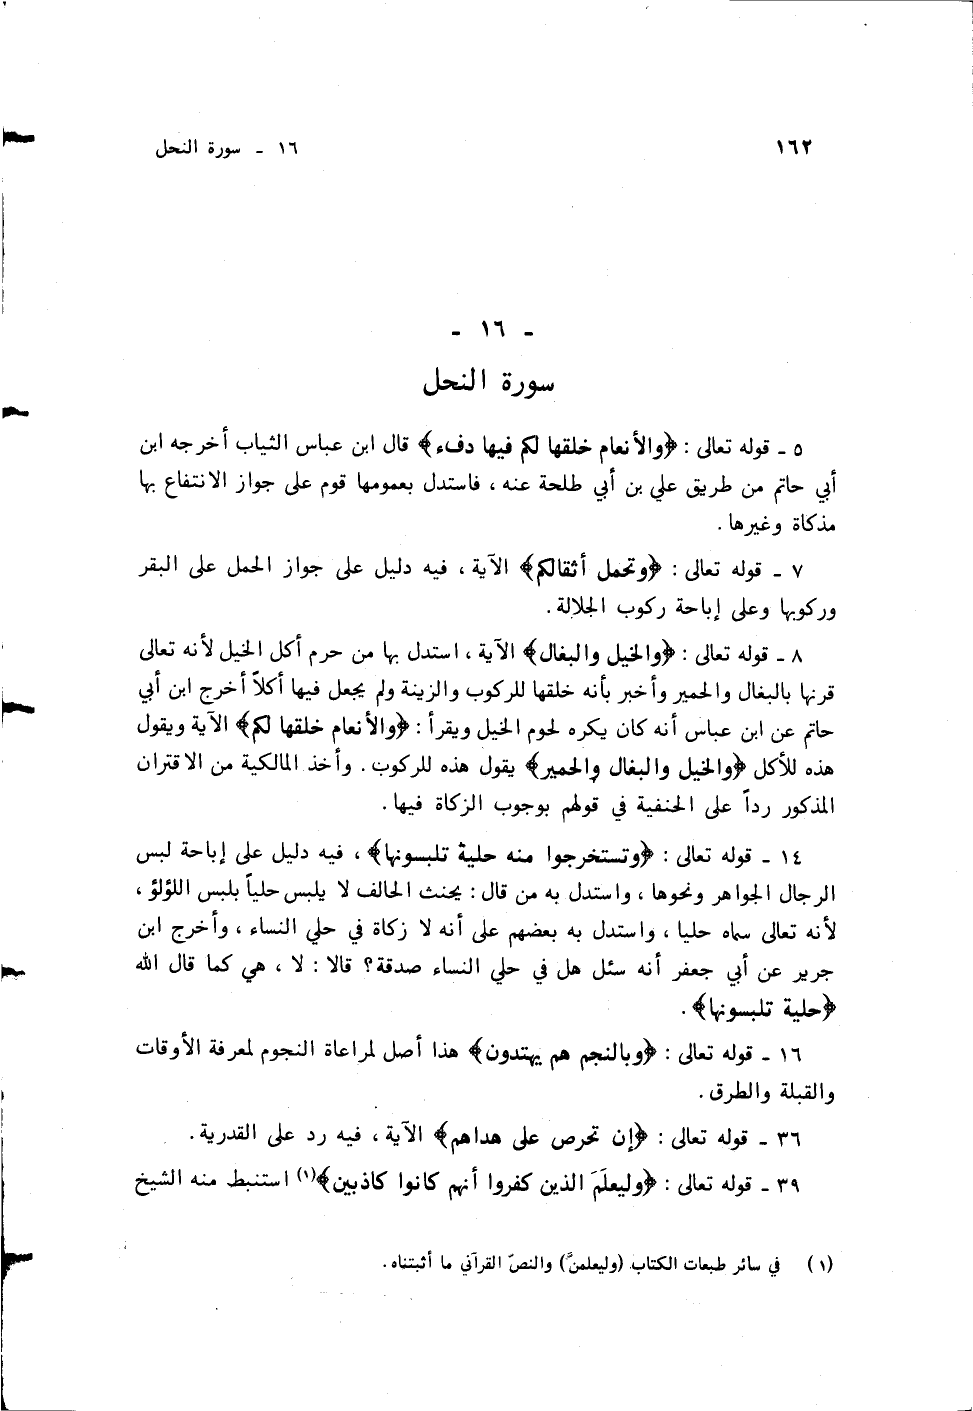 ١٦٢
١٦ - سورة النحل
- ١٦ -
سورة النحل
٥ - قوله تعالى : ﴿والأنعام خلقها لكم فيها دفء﴾ قال ابن عباس الثياب أخرجه ابن
أبي حاتم من طريق علي بن أبي طلحة عنه ، فاستدل بعمومها قوم على جواز الانتفاع بها
مذكاة وغيرها .
٧ - قوله تعالى : ﴿وتحمل أثقالكم﴾ الآية ، فيه دليل على جواز الحمل على البقر
وركوبها وعلى إباحة ركوب الجلالة .
٨ - قوله تعالى : ﴿والخيل والبغال﴾ الآية ، استدل بها من حرم أكل الخيل لأنه تعالى
قرنها بالبغال والحمير وأخبر بأنه خلقها للركوب والزينة ولم يجعل فيها أكلاً أخرج ابن أبي
حاتم عن ابن عباس أنه كان يكره لحوم الخيل ويقرأ : ﴿والأنعام خلقها لكم﴾ الآية ويقول
هذه للأكل ﴿والخيل والبغال والحمير﴾ يقول هذه للركوب . وأخذ المالكية من الاقتران
المذكور رداً على الحنفية في قولهم بوجوب الزكاة فيها .
١٤ - قوله تعالى : ﴿وتستخرجوا منه حلية تلبسونها﴾ ، فيه دليل على إباحة لبس
الرجال الجواهر ونحوها ، واستدل به من قال : يحنث الحالف لا يلبس حلياً بلبس اللؤلؤ ،
لأنه تعالى سماه حليا ، واستدل به بعضهم على أنه لا زكاة في حلي النساء ، وأخرج ابن
جرير عن أبي جعفر أنه سئل هل في حلي النساء صدقة؟ قالا : لا ، هي كما قال الله
﴿حلية تلبسونها﴾ .
١٦ - قوله تعالى : ﴿وبالنجم هم يهتدون﴾ هذا أصل لمراعاة النجوم لمعرفة الأوقات
والقبلة والطرق .
٣٦ - قوله تعالى : ﴿إن تحرص على هداهم﴾ الآية ، فيه رد على القدرية .
٣٩ - قوله تعالى : ﴿وليعلَمَ الذين كفروا أنهم كانوا كاذبين﴾(١) استنبط منه الشيخ
(١) في سائر طبعات الكتاب (وليعلمنَّ) والنصّ القرآني ما أثبتناه .